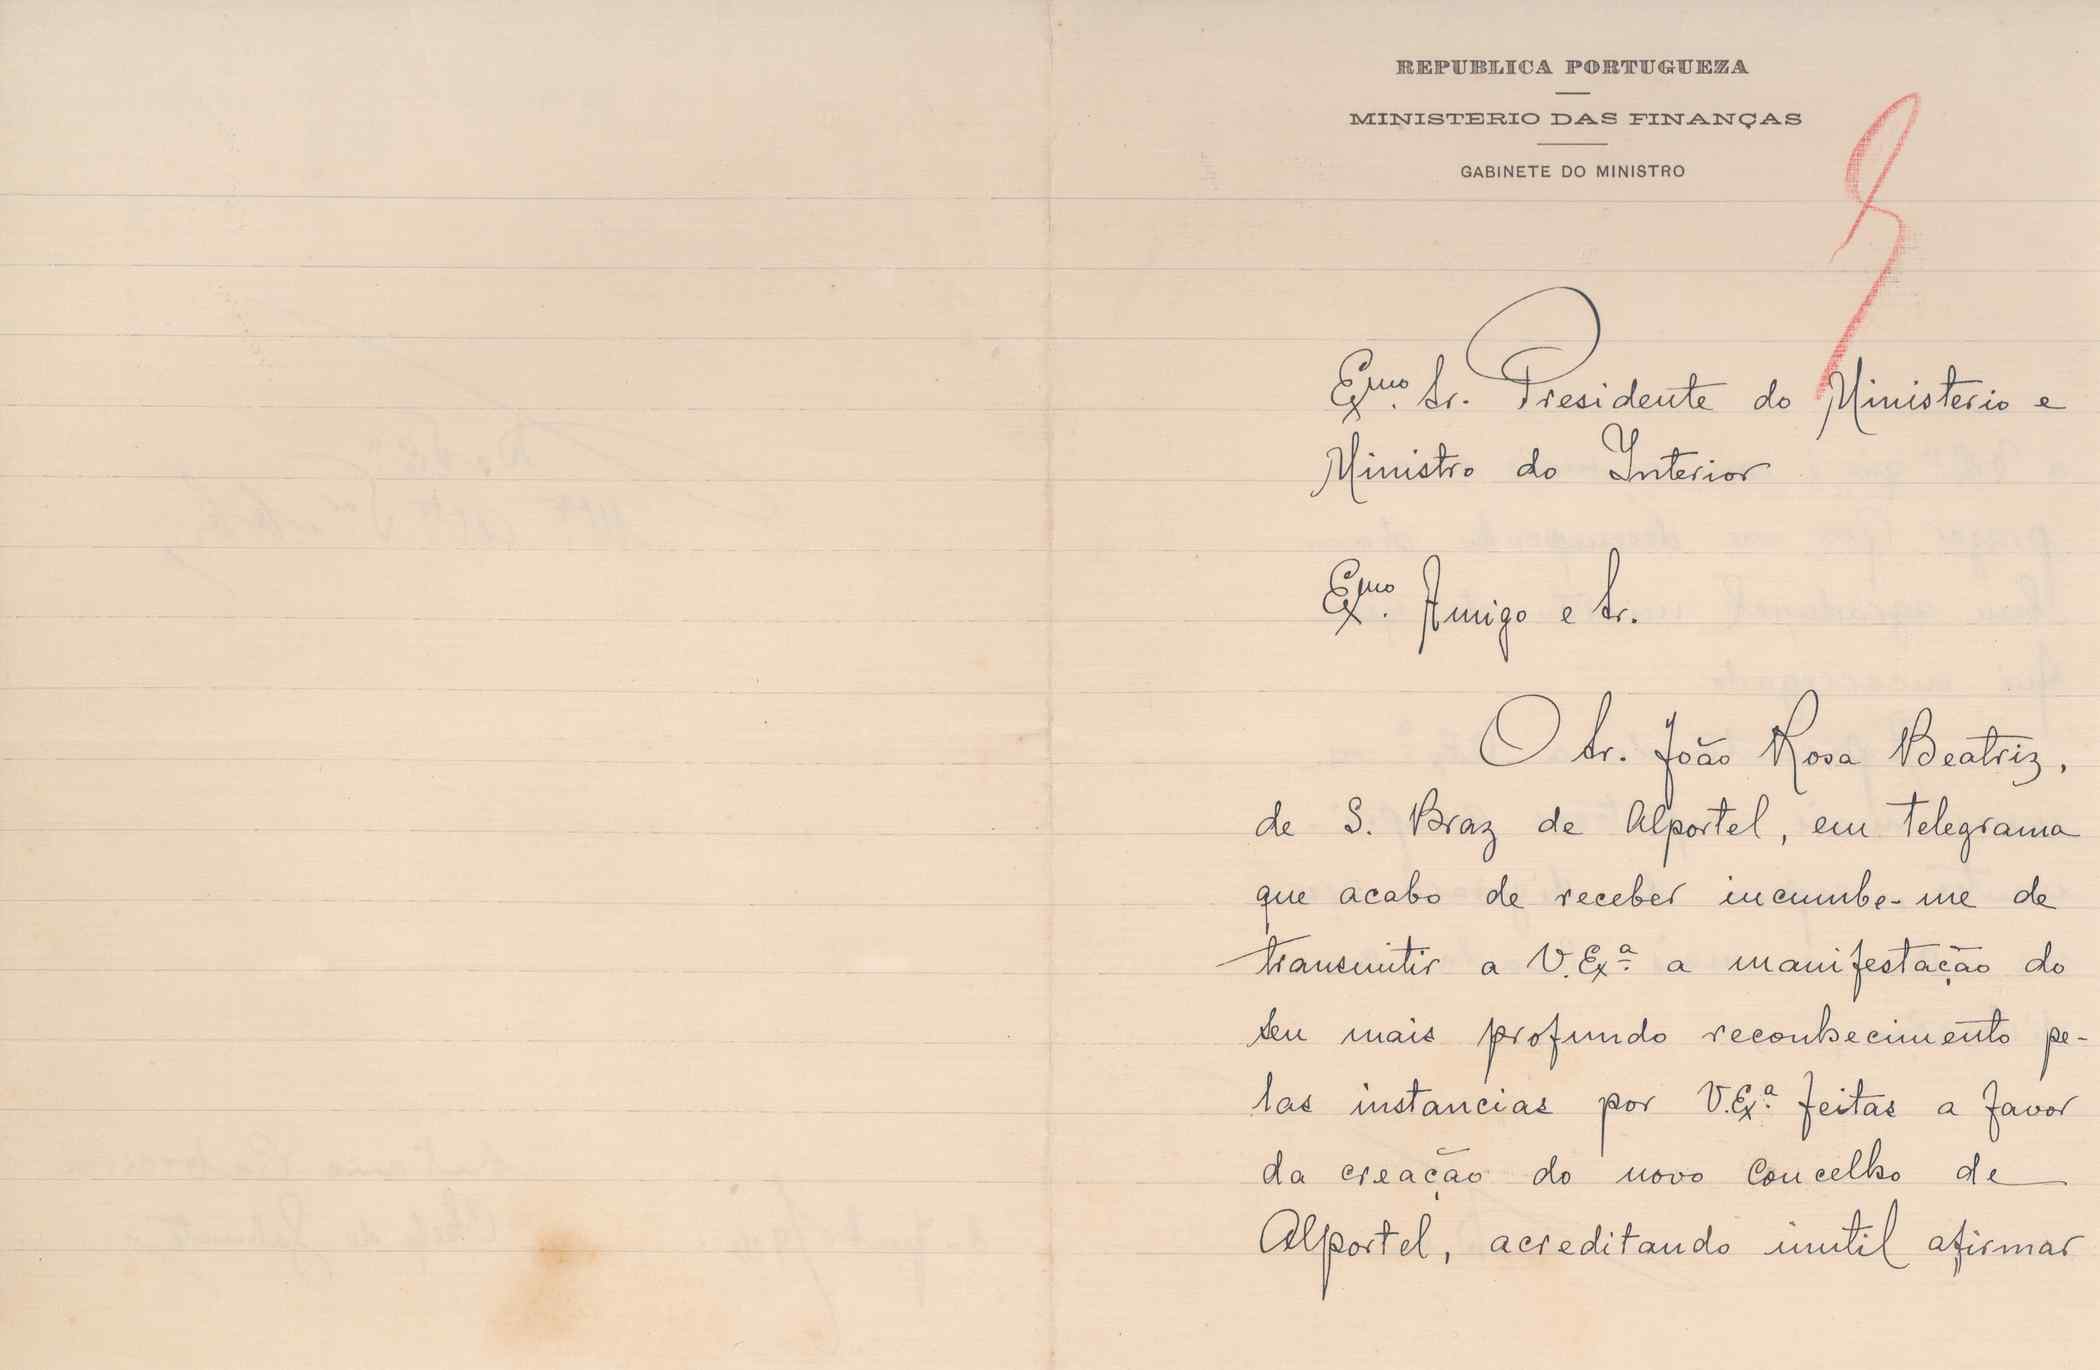 REPUBLICA PORTUGUEZA
MINISTERIO DAS FINANÇAS
GABINETE DO MINISTRO
Exmo. Sr. Presidente do Ministerio e
Ministro do Interior
Exmo. Amigo e Sr.
O Sr. João Rosa Beatriz,
de S. Braz de Alportel, em telegrama
que acabo de receber incumbe-me de
transmitir a V. Exª. a manifestação do
seu mais profundo reconhecimento pe-
las instancias por V. Exª. feitas a favor
da creação do novo Concelho de
Alportel, acreditando inutil afirmar